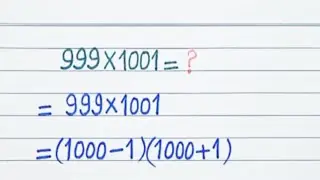 999×1001=?
= 999×1001
=(1000-1)(1000+1)